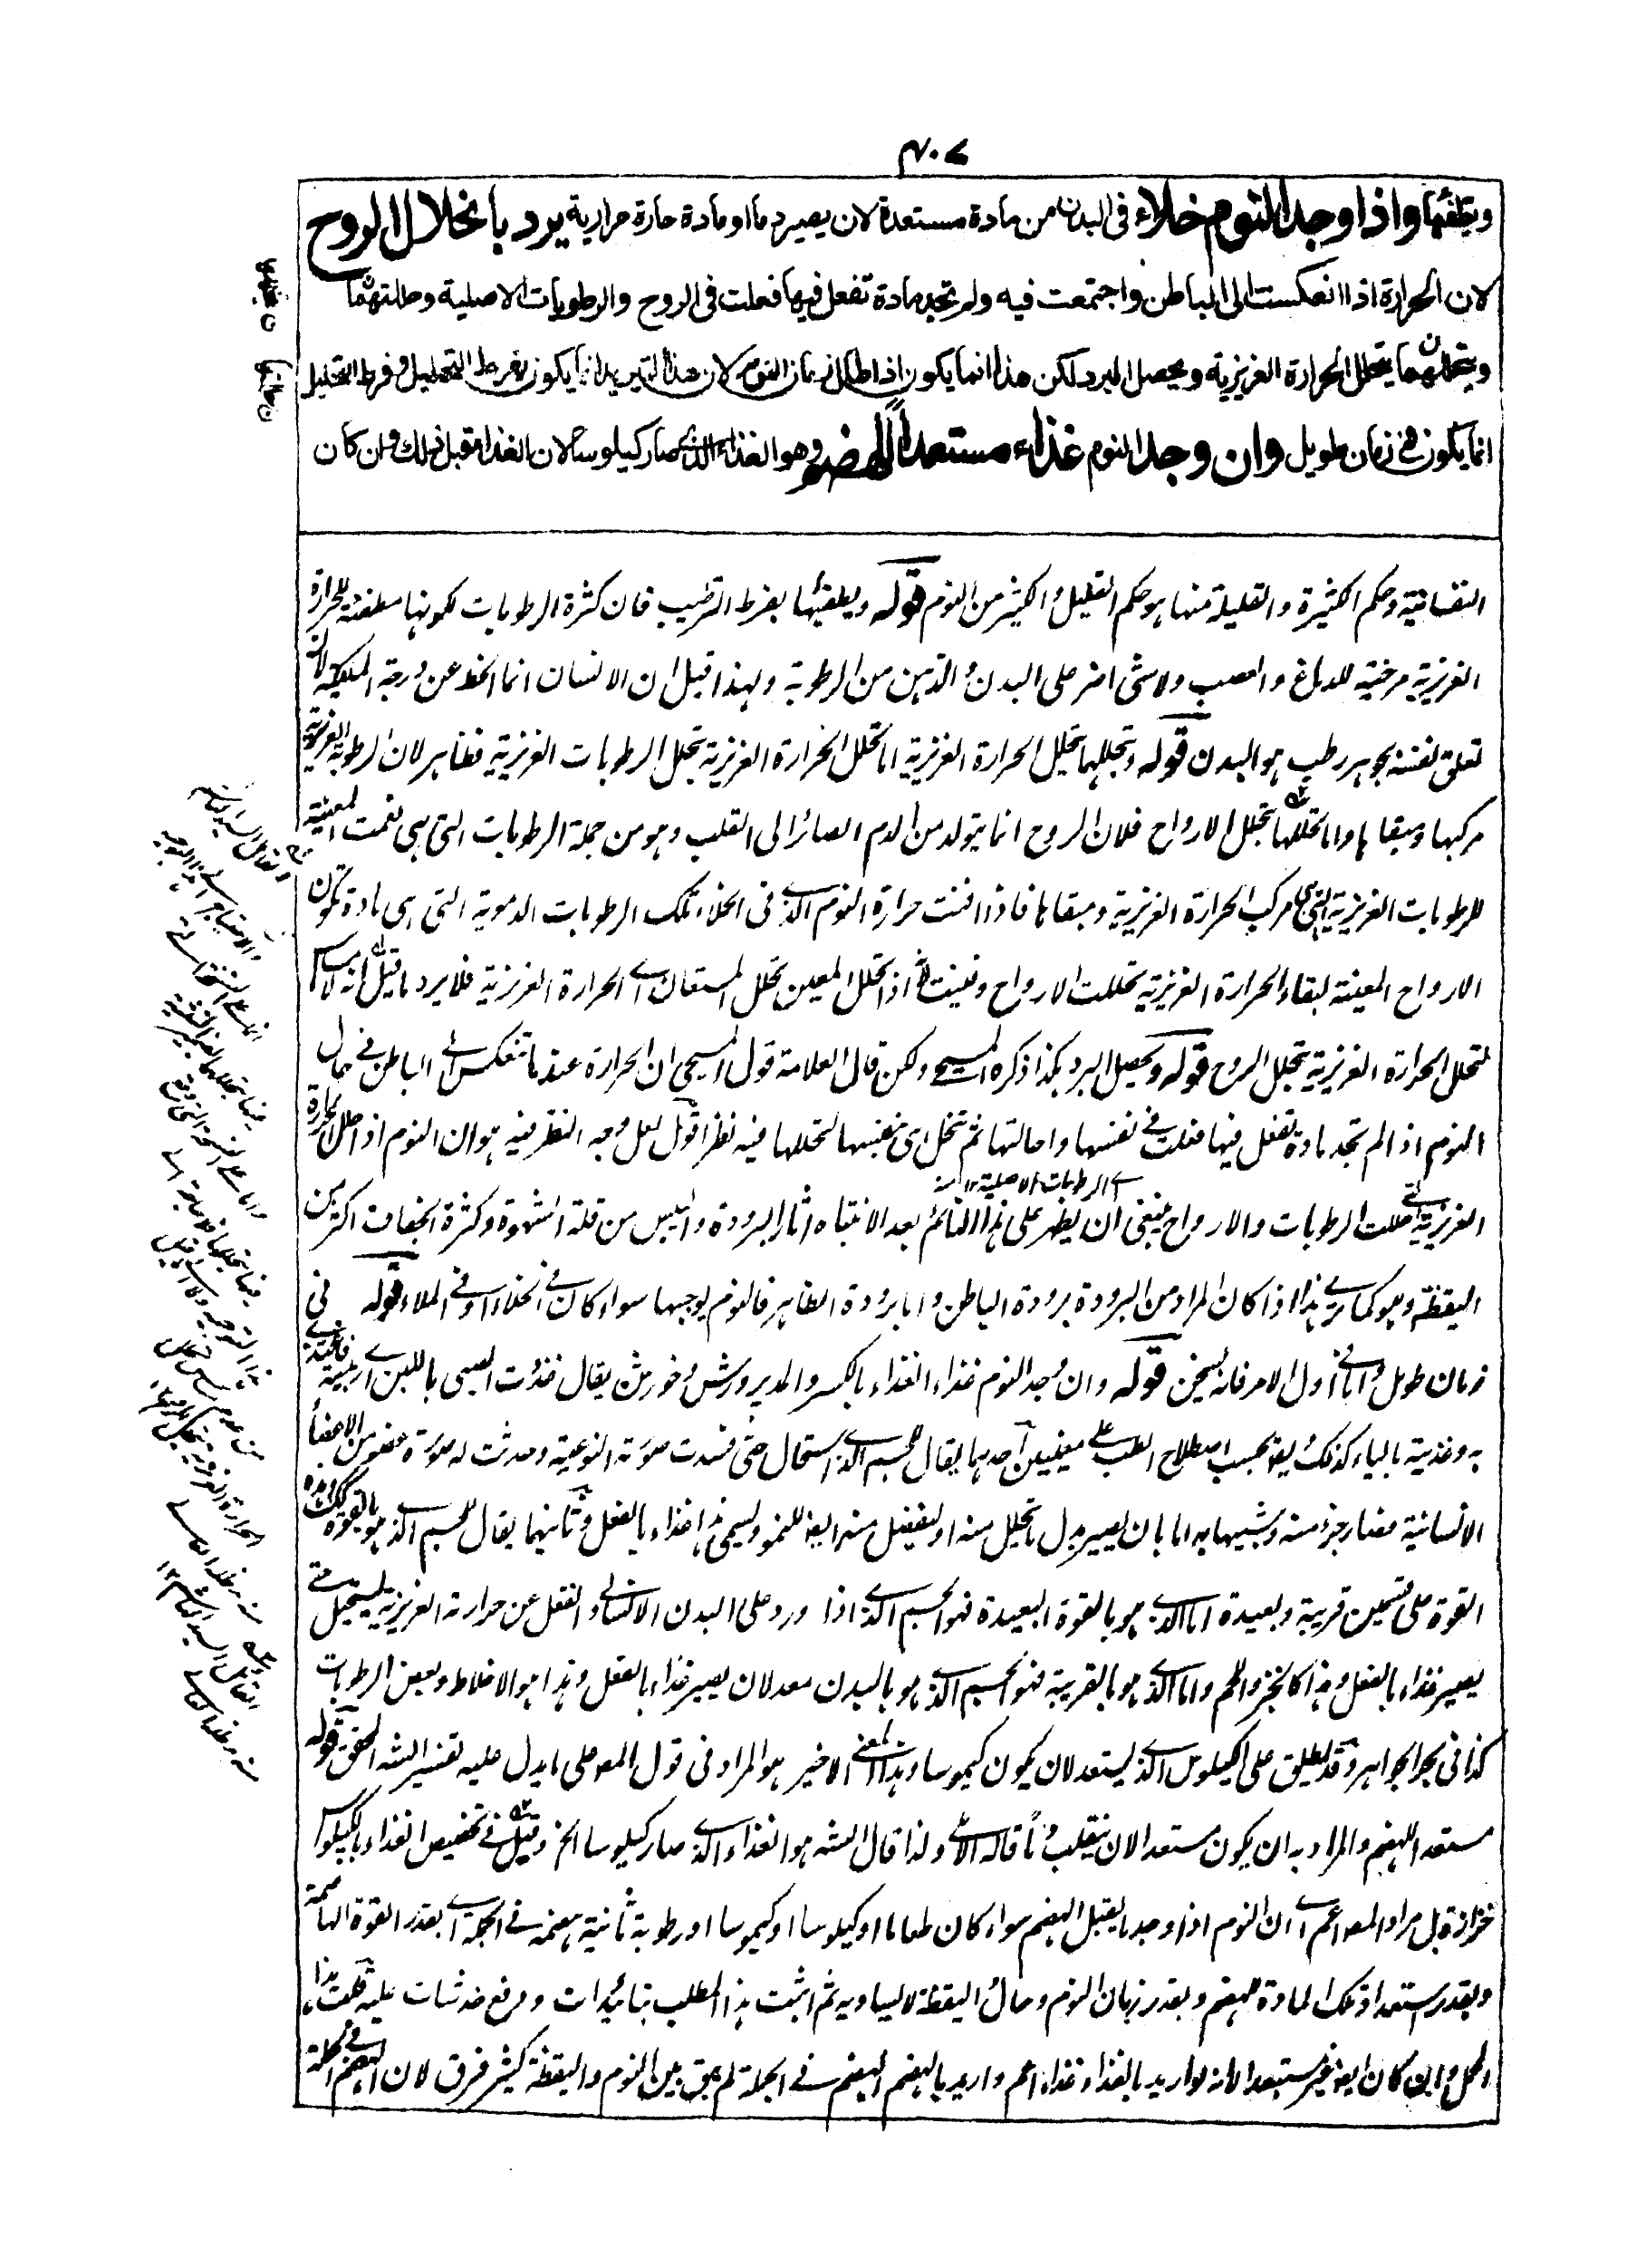 ٤٠٧
ويطفئها واذا وجد النوم خلاء فى البدن من مادة مستعدة لان يصير دما او مادة حارة مرارية يرد بانحلال الروح
لان الحرارة اذا انعكست الى الباطن واجتمعت فيه ولم تجد مادة تفعل فيها فعلت فى الروح والرطوبات الاصلية وحللتهما
وبتحللهما يتحلل الحرارة الغريزية ويحصل البرد لكن هذا انما يكون اذا طال زمان النوم لان هذا التبريد انما يكون بفرط التحليل وفرط التحليل
انما يكون فى زمان طويل وان وجد النوم غذاء مستعدا للهضم وهو الغذاء الذى صار كيلوسا لان الغذاء قبل ذلك وان كان
النفسانية وحكم الكثيرة والقليلة منها هو حكم القليل والكثير من النوم قوله ويطفئها بفرط الترطيب فان كثرة الرطوبات لكونها مطفئة للحرارة
الغريزية مرخية للدماغ والعصب ولا شئ اضر على البدن والذهن من الرطوبة ولهذا قيل ان الانسان انما انحط عن درجة الملكية لان
تعلق نفسه بجوهر رطب هو البدن قوله وبتحللهما يتحلل الحرارة الغريزية اما تحلل الحرارة الغريزية بتحلل الرطوبات الغريزية فظاهر لان الرطوبة الغريزية
مركبها ومبقاها واما تحللها بتحلل الارواح فلان الروح انما يتولد من الدم الصائر الى القلب وهو من جملة الرطوبات التى هى نعمت المعينة
للرطوبات الغريزية التى هى مركب الحرارة الغريزية ومبقاها فاذا افنت حرارة النوم الذى فى الخلاء تلك الرطوبات الدموية التى هى مادة تكون
الارواح المعينة لبقاء الحرارة الغريزية تحللت الارواح وفنيت اذ تحلل المعين تحلل المستعان اى الحرارة الغريزية فلا يرد ما قيل انه لا
تتحلل الحرارة الغريزية بتحلل الروح قوله ويحصل البرد هكذا ذكره المسيحى ولكن قال العلامة قول المسيحى ان الحرارة عندما تنعكس الى الباطن فى حال
النوم اذا لم تجد مادة تفعل فيها فعلت فى نفسها واحالتها ثم تتحلل هى بنفسها لتحللها فيه نظر اقول لعل وجه النظر فيه هو ان النوم اذا حلل الحرارة
اى الرطوبات الاصلية ١٢ منه
الغريزية التى حللت الرطوبات والارواح ينبغى ان يظهر على هذا النائم بعد الانتباه اثار البرودة واليبس من قلة الشهوة وكثرة الجفاف اكثر من
اليقظة وهو كما ترى هذا اذا كان المراد من البرودة برودة الباطن واما برودة الظاهر فالنوم يوجبها سواء كان فى الخلاء او فى الملاء قوله فى
زمان طويل واما فى اول الامر فانه يسخن قوله وان وجد النوم غذاء الغذاء بالكسر والمد پرورش وخورش يقال غذوت الصبى باللبن اى ربيته
به وغذيته بالياء كذلك يقع بحسب اصطلاح الطب على معنيين احدهما يقال للجسم الذى استحال حتى فسدت صورته النوعية وحدثت له صورة عضو من الاعضاء
الانسانية فصار جزء منه وشبيها به اما بان يصير بدل ما يتحلل منه او ليفضل منه ايضا للنمو ويسمى هذا غذاء بالفعل وثانيهما يقال للجسم الذى هو بالقوة كذلك وهذه
القوة على قسمين قريبة وبعيدة اما الذى هو بالقوة البعيدة فهو الجسم الذى اذا ورد على البدن الانسانى وانفعل عن حرارته الغريزية يستحيل حتى
يصير غذاء بالفعل وهذا كالخبز واللحم واما الذى هو بالقريبة فهو الجسم الذى هو بالبدن معد لان يصير غذاء بالفعل وهذا هو الاخلاط وبعض الرطوبات
كذا فى بحر الجواهر وقد يطلق على الكيلوس الذى يستعد لان يكون كيموسا وهذا المعنى الاخير هو المراد فى قول المص على ما يدل عليه تفسير الشه المحقق قوله
مستعدا للهضم والمراد به ان يكون مستعدا لان ينقلب دما قاله الآملى ولذا قال الشه هو الغذاء الذى صار كيلوسا الخ وقيل فى تخصيص الغذاء بالكيلوس
حزازة بل مراد المص اعم اى ان النوم اذا وجد ما يقبل الهضم سواء كان طعاما او كيلوسا او كيموسا او رطوبة ثانية هضمه فى الجملة اى بقدر القوة الهاضمة
وبقدر استعداد تلك المادة للهضم وبقدر زمان النوم وحال اليقظة لا يساويه ثم اثبت هذا المطلب بتائيدات ودفع خدشات عليه قلت هذا
الحمل وان كان ايضا غير مستبعد الا انه لو اريد بالغذاء غذاء اعم واريد بالهضم الهضم فى الجملة لم يبق بين النوم واليقظة كثير فرق لان الهضم فى الجملة